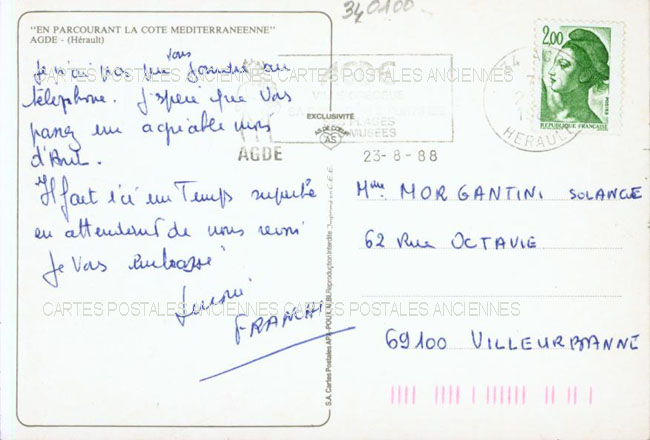 34 0100
"EN PARCOURANT LA COTE MEDITERRANEENNE"
AGDE - (Hérault)
Je n'ai pas pu vous joindre au
téléphone. J'espère que Vous
passez un agréable mois
d'Août.
Il fait ici un Temps superbe
en attendant de nous revoir
Je Vous embrasse
FRANCHI
CARTES POSTALES ANCIENNES CARTES POSTALES ANCIENNES
EXCLUSIVITÉ
AS DE CŒUR
AS
S.A. Cartes Postales APA-POUX, ALBI. Reproduction interdite
AGDE
PLAGES
MUSÉES
AGDE
23-8-88
HERAULT
2,00
REPUBLIQUE FRANÇAISE
POSTES
Mme MORGANTINI SOLANGE
62 Rue OCTAVIE
CARTES POSTALES ANCIENNES CARTES POSTALES ANCIENNES
69100 VILLEURBANNE